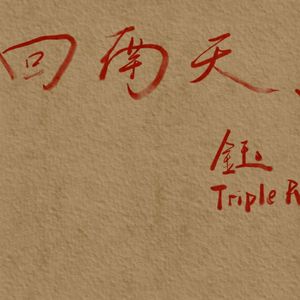 回南天
鈺
Triple